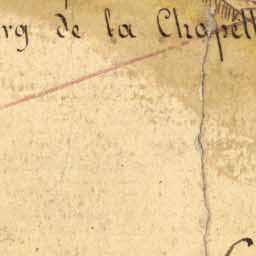 rg de la Chapell